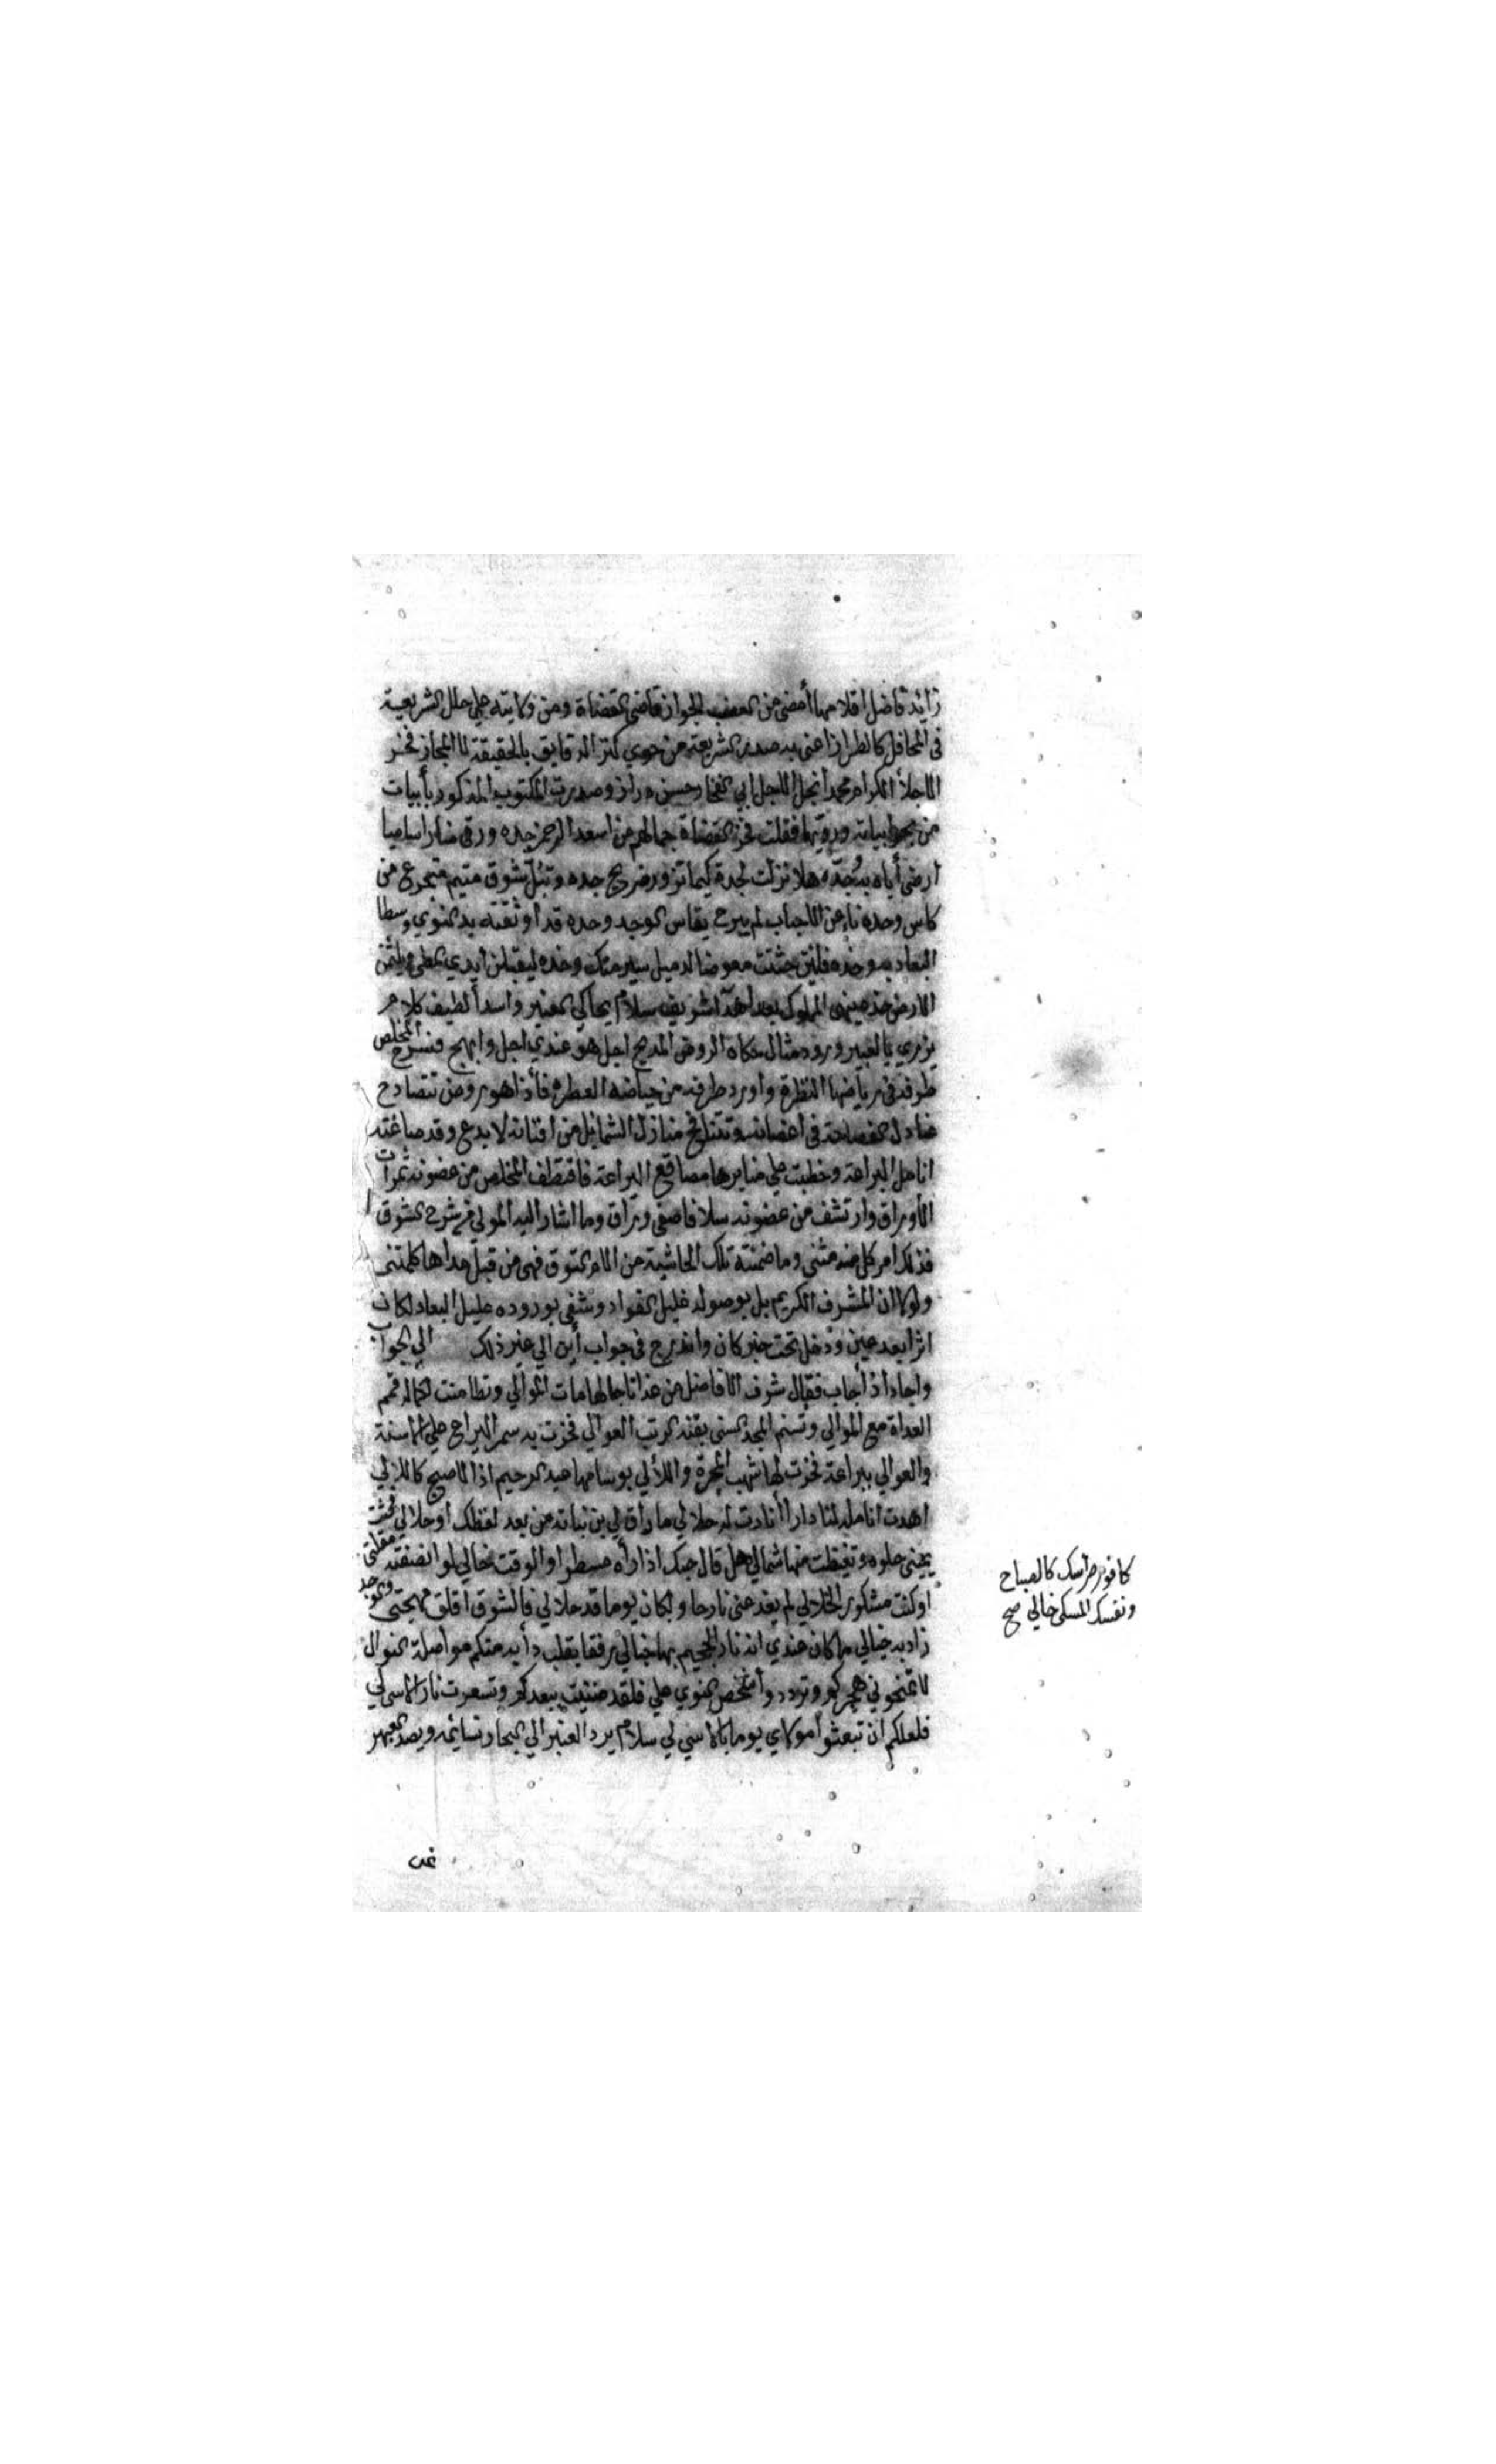 زايد فاضل اقلامها أمضى من العضب الجواز قاضى القضاة ومن ولايته على حلل الشريعية
فى المحافل كالطراز اعنى به صدر الشريعة من حوي كنز الدقايق بالحقيقة لا المجاز فخر
الاجلأ الكرام محمدا نجل الاجل ابي الفخار حسين دراز وصدرت المكتوب المذكور بأبيات
من فقلت فخر القضاة جمالهم من اسعد الرحمن جده ورقى منارا ساميا
ارضى أباه به وجده هلا نزلت لجدة كيما تزور ضريح جده وتبل شوق متيم متجرع من
كاس وحده ناء عن الاحباب لم يبرح يقاس الوجد وحده قد أوثقته يد النوي وسطا
البعاد به وخده فلئن حثثت معوضا لد ميل سيرمنك وخده ليقبلن أيدي المطى ويلثمن
الارض خده ينهى المملوك بعد اهدآ شريف سلام يحاكي العنبر واسدأ لطيف كلام
يزري بالعبير ورود مثال حكاه الروض المدبج اجل هو عندي اجل وابهج فنسرح المخلص
طرفه فى رياضها النظرة وأورد طرفه من حياضه العطرة فأذا هو روض تتصادح
عنادل الفصاحة فى اغصانه وتتنافح منازل الشمايل من افنانه لا بدع وقد صاغته
انامل البراعة وخطبت على منابرها مصاقع اليراعة فاقتطف المخلص من غضونه ثمرات
الأوراق وارتشف من غضونه سلافا صفى وراق وما اشار اليه المولي فى شرح الشوق
فذلك امر كل منه مثنى وما ضمنته تلك الحاشية من الام التوق فهى من قبل مداها كلمتنى
ولولا ان المشرف الكريم بل بوصوله غليل الفواد وشفى بوروده عليل البعاد لكان
اثرا بعد عين ودخل تحت خبر كان واندرج فى جواب أين الي غير ذلك الي الجواب
واجاد اذ أجاب فقال شرف الافاضل من غدا تاجا لهامات الموالي وتطامنت لكماله قمم
العداة مع الموالي وتسنم المجد السنى بقنة الرتب العوالي فخزت به سمر اليراع على الاسنة
والعوالي ببراعة فخزت لها شهب المجرة واللألي بوسامها عبد الرحيم اذا الاصبح كاللالي
اهدت انامله لنا دارا أنادت له حلالي ما راق لي بن نباته من بعد لفظك أو حلالي فجثت
يمينى حلوه وتغيظت منها شمالي هل قال حبك اذ ارأه مسطرا والوقت خالي لو انصفته مقلتى
اوكنت مشكور الخلالي لم يغد عنى نازحا ولكان يوما قد حلا لي فالشوق اقلق مهجتى والوجد
زاد به خبالي ما كان عندي انه نار الجحيم بها خبالي رفقا بقلب دأبه منكم مواصلة النوال
لا تمنحوني هجركم وتردد وأشخص النوي على فلقد ضنيت ببعدكم وتسعرت نار الاسى لي
فلعلكم ان تبعثوا مولاي يوما بالاسي لي سلام يرد العنبر الي البحار نسائمه ويصد العبهر
كافور طرسك كالصباح
ونفسك المسكى خالي صح
عن